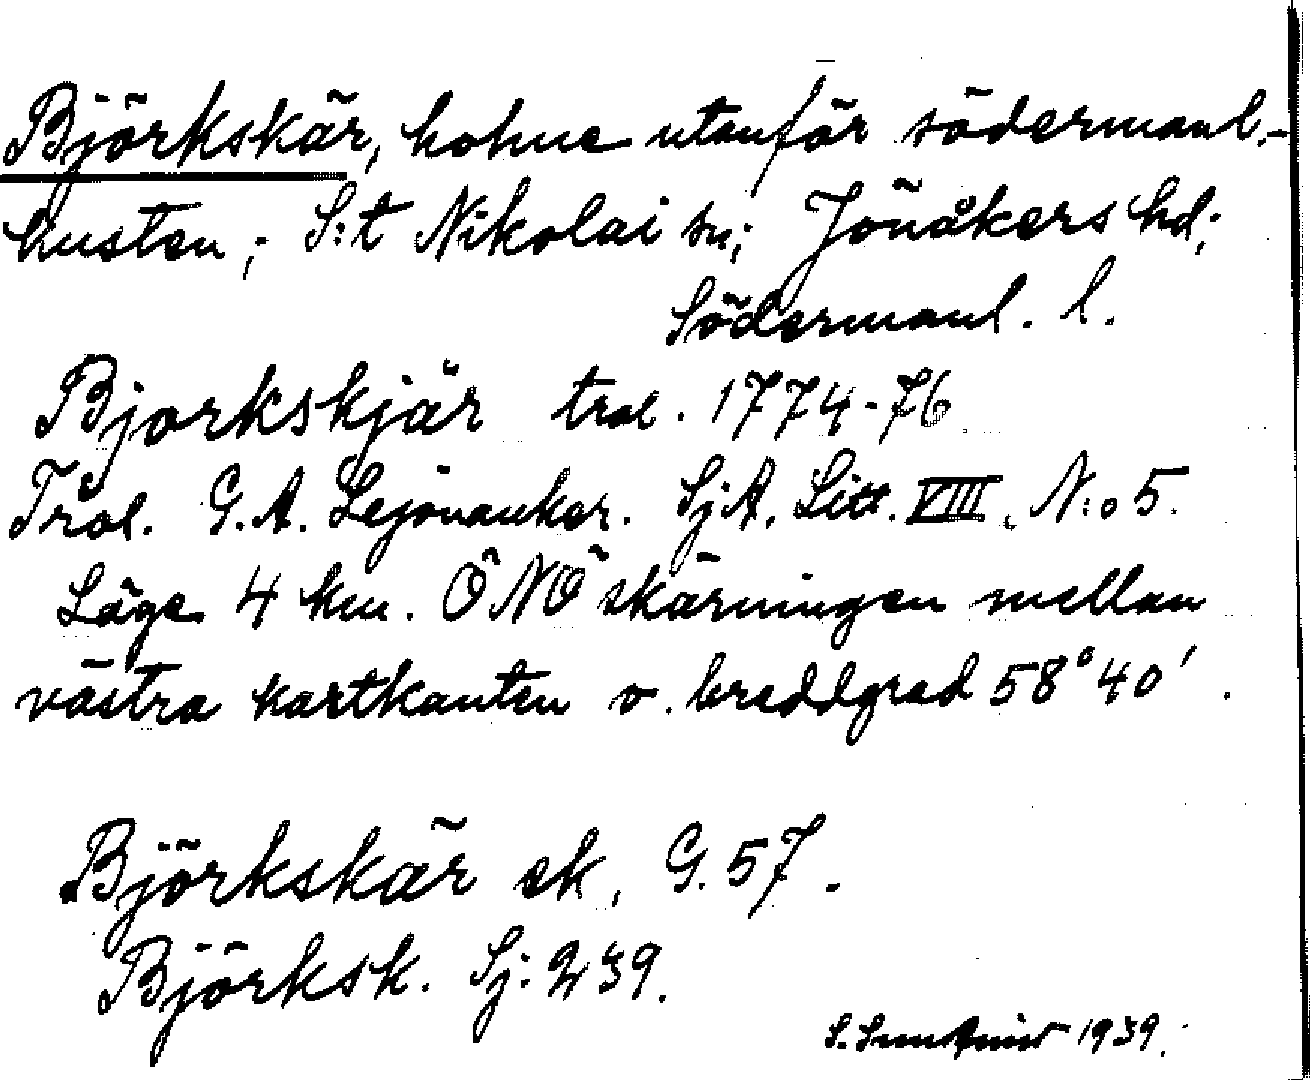 Björkskär, holme utanför södermanl.-
kusten; S:t Nikolai sn; Jönåkers hd;
Södermanl. l.
Bjorkskjär trol. 1774-76
Trol. G. A. Lejonanker. SjA. Litt. VIII, N:o 5.
Läge 4 km. ÖNÖ skärningen mellan
västra kartkanten o. breddgrad 58° 40'.
Björkskär ek. G. 57.
Björksk. Sj: 239.
S. 1939.